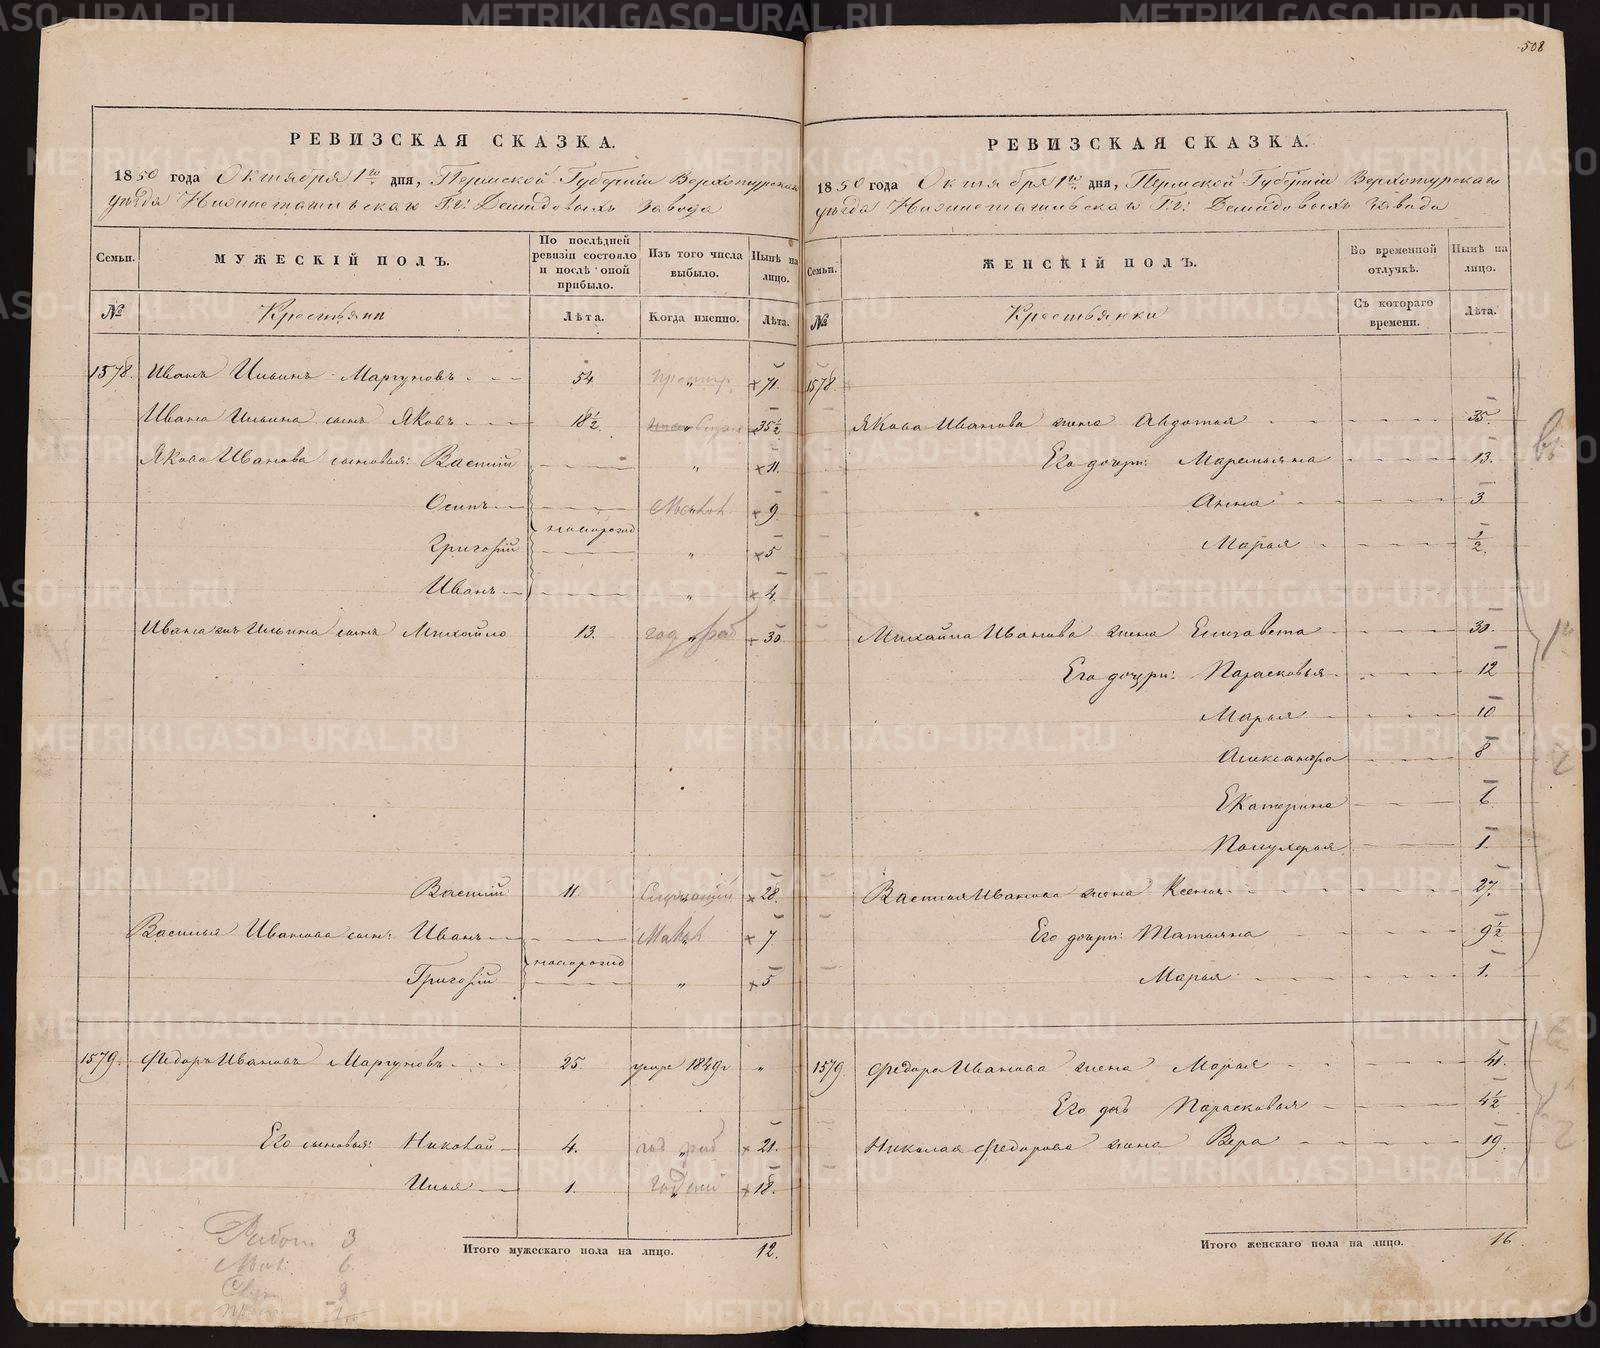 508
РЕВИЗСКАЯ СКАЗКА.
1850 года Октября 1го дня, Пермской Губерніи Верхотурскаго
уѣзда Нижнетагильскаго Гг: Демидовыхъ завода
Семьи. МУЖЕСКІЙ ПОЛЪ. По послѣдней ревизіи состояло и послѣ оной прибыло. Изъ того числа выбыло. Нынѣ на лицо.
№ Крестьяни Лѣта. Когда именно. Лѣта.
1578. Иванъ Ильинъ Маргуновъ 54 " 71.
Ивана Ильина сынъ Яковъ 18½ 35½
Якова Иванова сыновья: Василій " 11.
Осипъ 9
новорожд
Григорій " 5
Иванъ " 4
Ивана Ильина сынъ Михайло 13. год раб 30
Василій 11. Служащій 28.
Василья Иванова сын: Иванъ 7
новорожд
Григорій " 5
1579. Федоръ Ивановъ Маргуновъ 25. умре 1849г "
Его сыновья: Николай 4. год раб 21.
Илья 1. 18.
Итого мужескаго пола на лицо. 12.
Работ. 3
Мал. 6
РЕВИЗСКАЯ СКАЗКА.
1850 года Октября 1го дня, Пермской Губерніи Верхотурскаго
уѣзда Нижнетагильскаго Гг: Демидовыхъ завода
Семьи. ЖЕНСКІЙ ПОЛЪ. Во временной отлучкѣ. Нынѣ на лицо.
№ Крестьянки Съ котораго времени. Лѣта.
1578.
Якова Иванова жена Авдотья 35.
Его дочери: Маремьяна 13.
Анна 3.
Марья ½
Михайла Иванова жена Елизавета 30.
Его дочери: Парасковья 12
Марья 10
Александра 8
Екатерина 6
Полухерья 1.
Василья Иванова жена Ксенья 27.
Его дочери: Татьяна 9½
Марья 1.
1579. Федора Иванова жена Марья 41.
Его дочь Парасковья 4½
Николая Федорова жена Вера 19.
Итого женскаго пола на лицо. 16.
METRIKI.GASO-URAL.RU